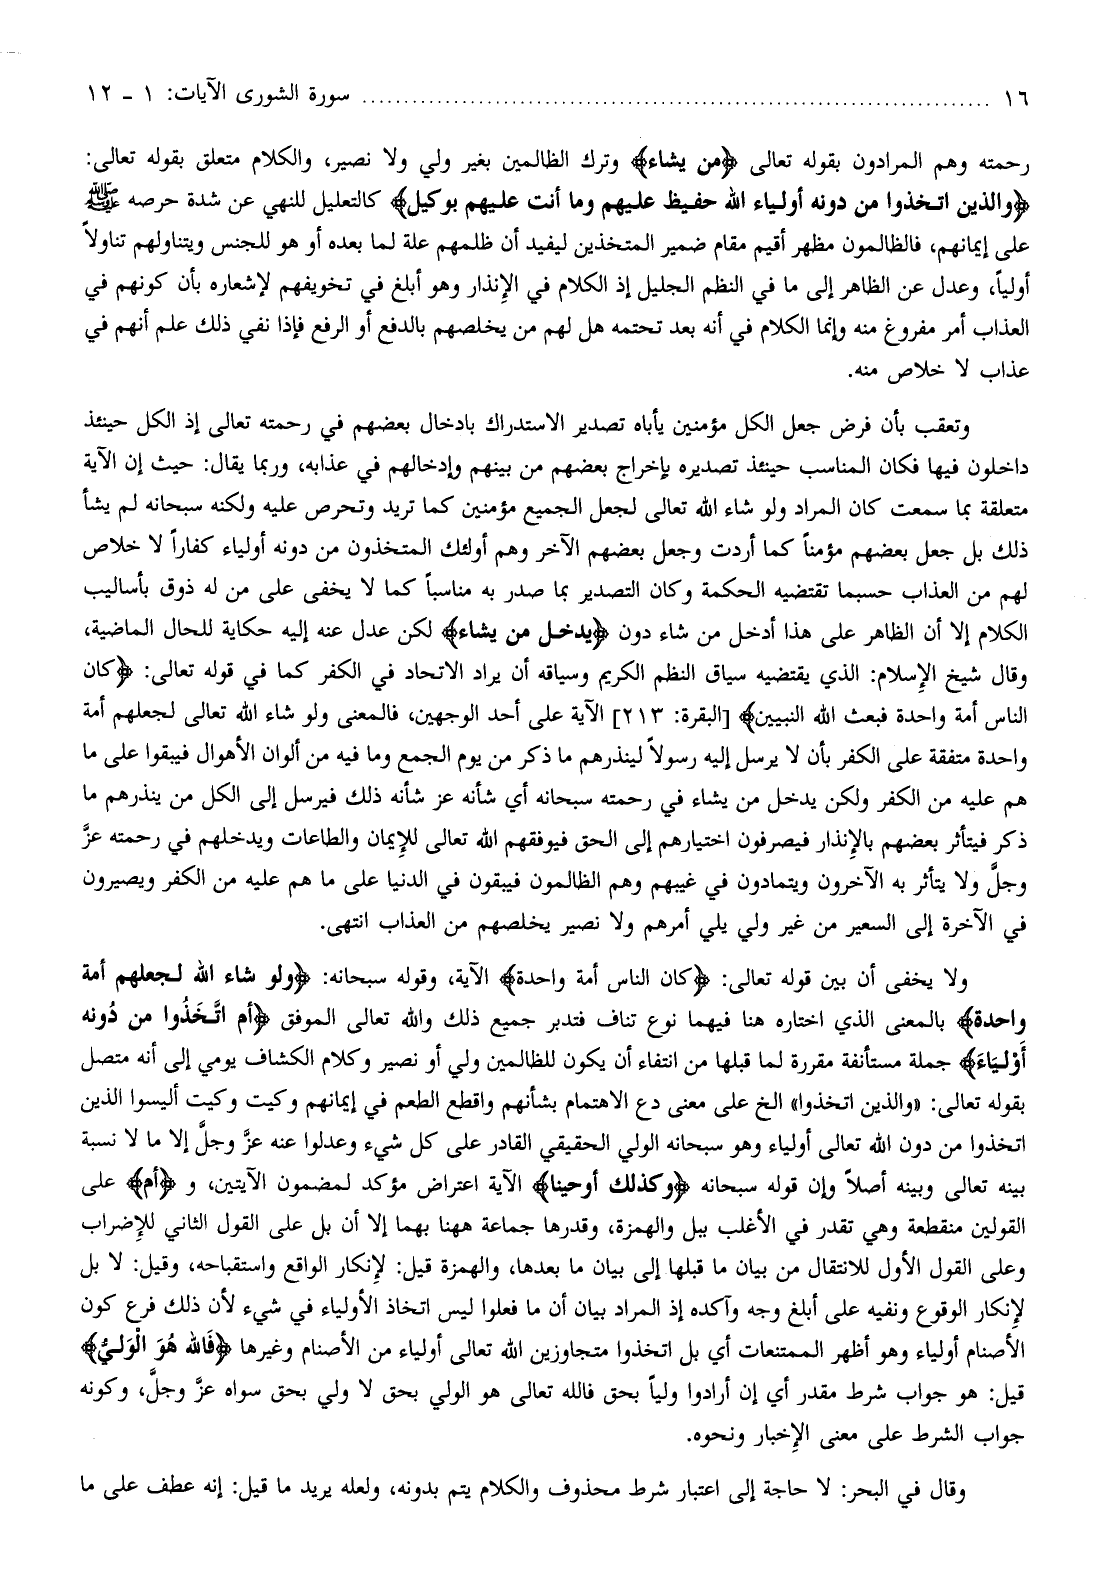 ١٦ ........................................ سورة الشورى الآيات: ١ - ١٢
رحمته وهم المرادون بقوله تعالى ﴿من يشاء﴾ وترك الظالمين بغير ولي ولا نصير، والكلام متعلق بقوله تعالى:
﴿والذين اتخذوا من دونه أولياء الله حفيظ عليهم وما أنت عليهم بوكيل﴾ كالتعليل للنهي عن شدة حرصه ﷺ
على إيمانهم، فالظالمون مظهر أقيم مقام ضمير المتخذين ليفيد أن ظلمهم علة لما بعده أو هو للجنس ويتناولهم تناولاً
أولياً، وعدل عن الظاهر إلى ما في النظم الجليل إذ الكلام في الإنذار وهو أبلغ في تخويفهم لإشعاره بأن كونهم في
العذاب أمر مفروغ منه وإنما الكلام في أنه بعد تحتمه هل لهم من يخلصهم بالدفع أو الرفع فإذا نفي ذلك علم أنهم في
عذاب لا خلاص منه.
وتعقب بأن فرض جعل الكل مؤمنين يأباه تصدير الاستدراك بادخال بعضهم في رحمته تعالى إذ الكل حينئذ
داخلون فيها فكان المناسب حينئذ تصديره بإخراج بعضهم من بينهم وإدخالهم في عذابه، وربما يقال: حيث إن الآية
متعلقة بما سمعت كان المراد ولو شاء الله تعالى لجعل الجميع مؤمنين كما تريد وتحرص عليه ولكنه سبحانه لم يشأ
ذلك بل جعل بعضهم مؤمناً كما أردت وجعل بعضهم الآخر وهم أولئك المتخذون من دونه أولياء كفاراً لا خلاص
لهم من العذاب حسبما تقتضيه الحكمة وكان التصدير بما صدر به مناسباً كما لا يخفى على من له ذوق بأساليب
الكلام إلا أن الظاهر على هذا أدخل من شاء دون ﴿يدخل من يشاء﴾ لكن عدل عنه إليه حكاية للحال الماضية،
وقال شيخ الإسلام: الذي يقتضيه سياق النظم الكريم وسباقه أن يراد الاتحاد في الكفر كما في قوله تعالى: ﴿كان
الناس أمة واحدة فبعث الله النبيين﴾ [البقرة: ٢١٣] الآية على أحد الوجهين، فالمعنى ولو شاء الله تعالى لجعلهم أمة
واحدة متفقة على الكفر بأن لا يرسل إليه رسولاً لينذرهم ما ذكر من يوم الجمع وما فيه من ألوان الأهوال فيبقوا على ما
هم عليه من الكفر ولكن يدخل من يشاء في رحمته سبحانه أي شأنه عز شأنه ذلك فيرسل إلى الكل من ينذرهم ما
ذكر فيتأثر بعضهم بالإنذار فيصرفون اختيارهم إلى الحق فيوفقهم الله تعالى للإيمان والطاعات ويدخلهم في رحمته عزَّ
وجلَّ ولا يتأثر به الآخرون ويتمادون في غيبهم وهم الظالمون فيبقون في الدنيا على ما هم عليه من الكفر ويصيرون
في الآخرة إلى السعير من غير ولي يلي أمرهم ولا نصير يخلصهم من العذاب انتهى.
ولا يخفى أن بين قوله تعالى: ﴿كان الناس أمة واحدة﴾ الآية، وقوله سبحانه: ﴿ولو شاء الله لجعلهم أمة
واحدة﴾ بالمعنى الذي اختاره هنا فيهما نوع تناف فتدبر جميع ذلك والله تعالى الموفق ﴿أم اتَّخَذُوا من دُونه
أَوْليَاءَ﴾ جملة مستأنفة مقررة لما قبلها من انتفاء أن يكون للظالمين ولي أو نصير وكلام الكشاف يومي إلى أنه متصل
بقوله تعالى: «والذين اتخذوا» الخ على معنى دع الاهتمام بشأنهم واقطع الطعم في إيمانهم وكيت وكيت أليسوا الذين
اتخذوا من دون الله تعالى أولياء وهو سبحانه الولي الحقيقي القادر على كل شيء وعدلوا عنه عزَّ وجلَّ إلا ما لا نسبة
بينه تعالى وبينه أصلاً وإن قوله سبحانه ﴿وكذلك أوحينا﴾ الآية اعتراض مؤكد لمضمون الآيتين، و ﴿أم﴾ على
القولين منقطعة وهي تقدر في الأغلب ببل والهمزة، وقدرها جماعة ههنا بهما إلا أن بل على القول الثاني للإضراب
وعلى القول الأول للانتقال من بيان ما قبلها إلى بيان ما بعدها، والهمزة قيل: لإنكار الواقع واستقباحه، وقيل: لا بل
لإنكار الوقوع ونفيه على أبلغ وجه وآكده إذ المراد بيان أن ما فعلوا ليس اتخاذ الأولياء في شيء لأن ذلك فرع كون
الأصنام أولياء وهو أظهر الممتنعات أي بل اتخذوا متجاوزين الله تعالى أولياء من الأصنام وغيرها ﴿فَالله هُوَ الْوَليُّ﴾
قيل: هو جواب شرط مقدر أي إن أرادوا ولياً بحق فالله تعالى هو الولي بحق لا ولي بحق سواه عزَّ وجلَّ، وكونه
جواب الشرط على معنى الإخبار ونحوه.
وقال في البحر: لا حاجة إلى اعتبار شرط محذوف والكلام يتم بدونه، ولعله يريد ما قيل: إنه عطف على ما